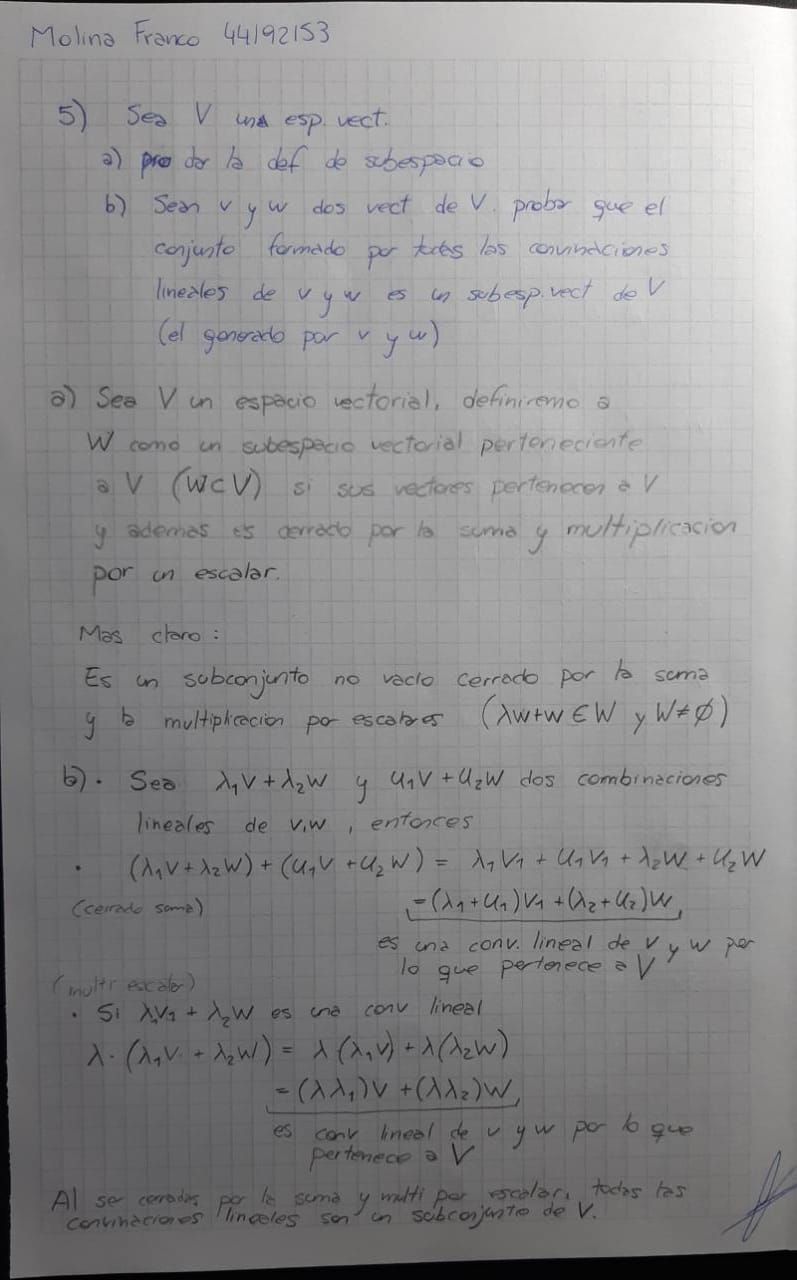 Molina Franco 44192153
5) Sea V una esp. vect.
a) pro dar la def de subespacio
b) Sean v y w dos vect de V. probar que el
conjunto formado por todas las convinaciones
lineales de v y w es un subesp. vect de V
(el generado por v y w)
a) Sea V un espacio vectorial, definiremo a
W como un subespacio vectorial perteneciente
a V (W⊂V) si sus vectores pertenecen a V
y ademas es cerrado por la suma y multiplicacion
por un escalar.
Mas claro:
Es un subconjunto no vacio cerrado por la suma
y la multiplicacion por escalares (λw+w ∈ W y W≠∅)
b). Sea λ₁v + λ₂w y u₁v + u₂w dos combinaciones
lineales de v,w, entonces
• (λ₁v+λ₂w)+(u₁v+u₂w) = λ₁v₁ + u₁v₁ + λ₂w + u₂w
(cerrado soma) =(λ₁+u₁)v₁+(λ₂+u₂)w,
es una conv. lineal de v y w por
lo que pertenece a V
(multi escalar)
• Si λ₁v₁ + λ₂w es una conv lineal
λ·(λ₁v + λ₂w) = λ(λ₁v)+λ(λ₂w)
=(λλ₁)v +(λλ₂)w,
es conv lineal de v y w por lo que
pertenece a V
Al ser cerradas por la suma y multi por escalar, todas las
convinaciones lineales son un subconjunto de V.